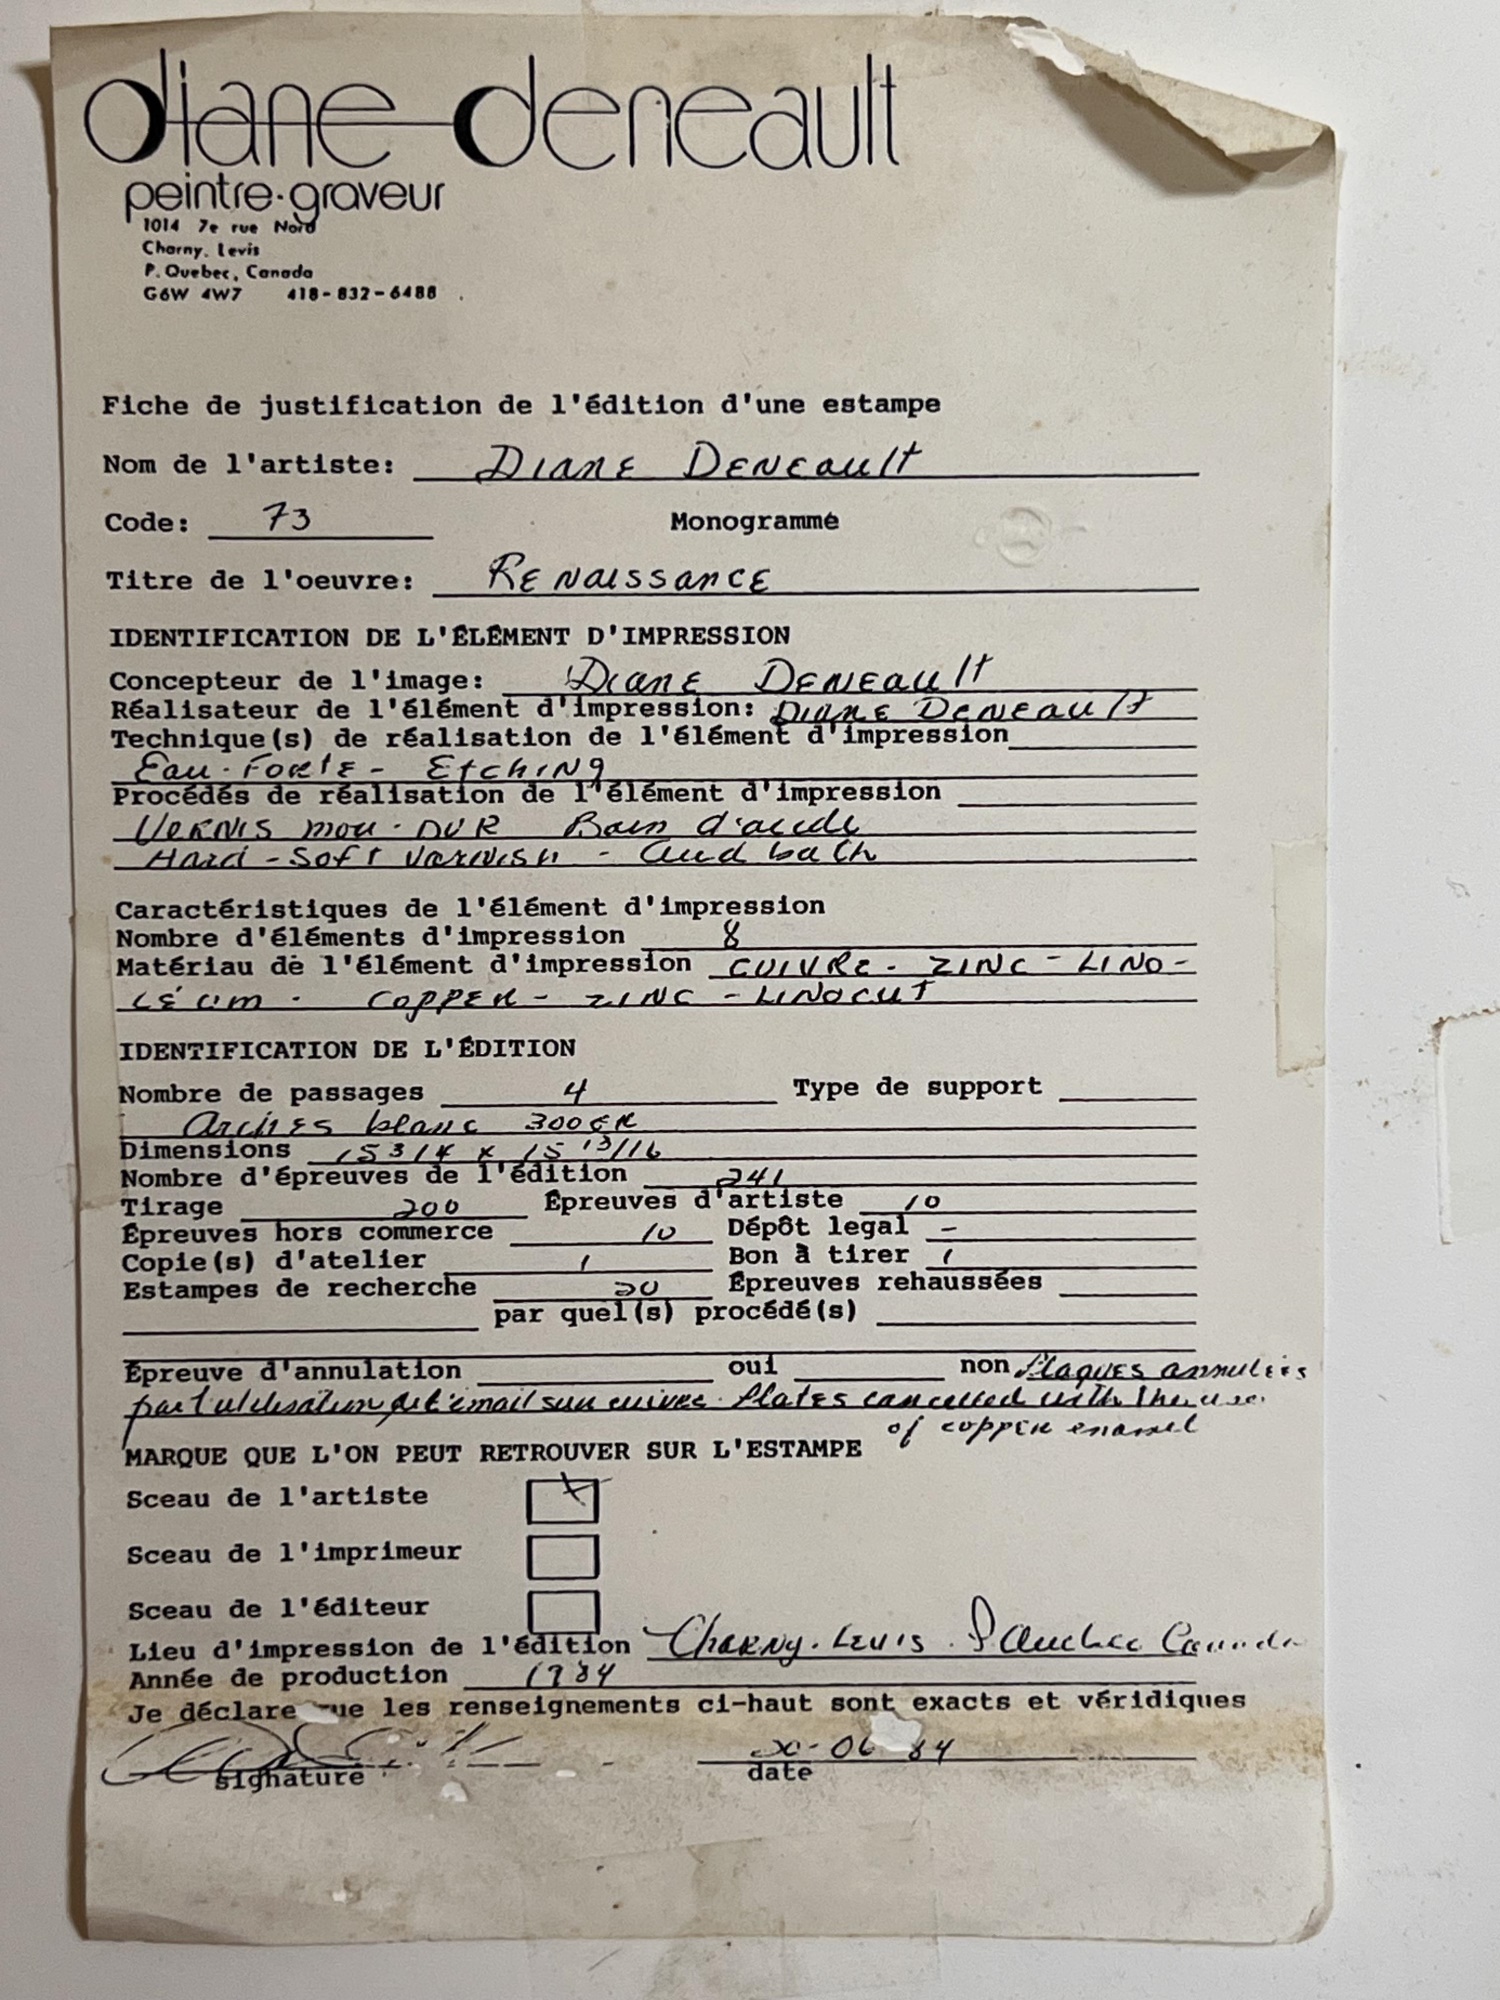 diane deneault
peintre·graveur
1014 7e rue Nord
Charny, Levis
P. Quebec, Canada
G6W 4W7 418-832-6488
Fiche de justification de l'édition d'une estampe
Nom de l'artiste: DIANE DENEAULT
Code: 73 Monogrammé
Titre de l'oeuvre: RENAISSANCE
IDENTIFICATION DE L'ÉLÉMENT D'IMPRESSION
Concepteur de l'image: DIANE DENEAULT
Réalisateur de l'élément d'impression: DIANE DENEAULT
Technique(s) de réalisation de l'élément d'impression
Eau-Forte - Etching
Procédés de réalisation de l'élément d'impression
Vernis mou - DUR Bain d'acide
Hard - Soft varnish - acid bath
Caractéristiques de l'élément d'impression
Nombre d'éléments d'impression 8
Matériau de l'élément d'impression CUIVRE - ZINC - LINO-
LÉUM - COPPER - ZINC - LINOCUT
IDENTIFICATION DE L'ÉDITION
Nombre de passages 4 Type de support
Arches blanc 300GR
Dimensions 15 3/4 x 15 13/16
Nombre d'épreuves de l'édition 241
Tirage 200 Épreuves d'artiste 10
Épreuves hors commerce 10 Dépôt legal -
Copie(s) d'atelier 1 Bon à tirer 1
Estampes de recherche 20 Épreuves rehaussées
par quel(s) procédé(s)
Épreuve d'annulation oui non Plaques annulées
par l'utilisation de l'émail sur cuivre. Plates cancelled with the use
of copper enamel
MARQUE QUE L'ON PEUT RETROUVER SUR L'ESTAMPE
Sceau de l'artiste X
Sceau de l'imprimeur
Sceau de l'éditeur
Lieu d'impression de l'édition Charny. Levis. P Quebec Canada
Année de production 1984
Je déclare que les renseignements ci-haut sont exacts et véridiques
06 84
signature date